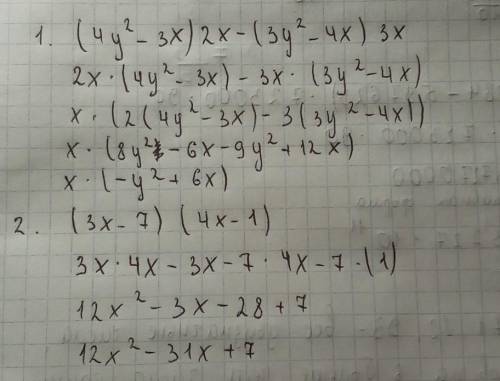 1. (4y² - 3x) 2x - (3y² - 4x) 3x
2x · (4y² - 3x) - 3x · (3y² - 4x)
x · (2(4y² - 3x) - 3(3y² - 4x))
x · (8y² - 6x - 9y² + 12x)
x · (-y² + 6x)
2. (3x - 7) (4x - 1)
3x · 4x - 3x - 7 · 4x - 7 · (1)
12x² - 3x - 28 + 7
12x² - 31x + 7